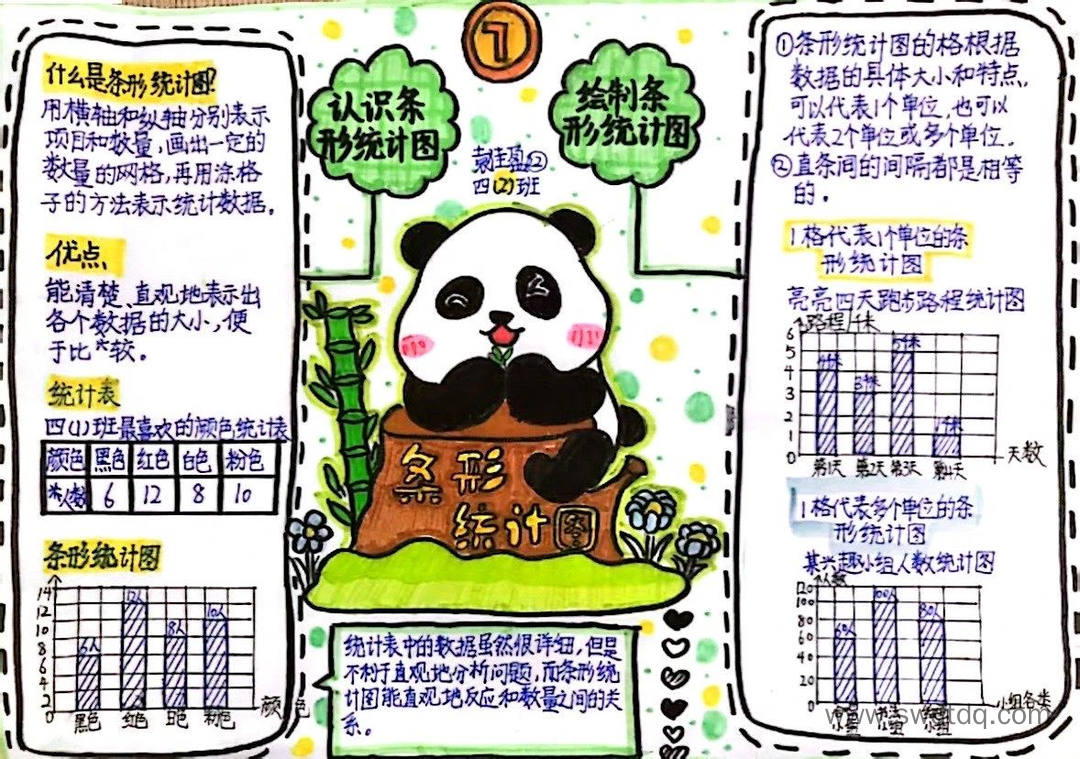 什么是条形统计图?
用横轴和纵轴分别表示
项目和数量,画出一定的
数量的网格,再用涂格
子的方法表示统计数据。
优点
能清楚、直观地表示出
各个数据的大小,便
于比较。
统计表
四(1)班最喜欢的颜色统计表
颜色 黑色 红色 白色 粉色
人数 6 12 8 10
条形统计图
14
12
10
8
6
4
2
0
6人
12人
8人
10人
黑色 红色 白色 粉色
颜色
7
认识条
形统计图
绘制条
形统计图
四(2)班
条形
统计图
统计表中的数据虽然很详细,但是
不利于直观地分析问题,而条形统
计图能直观地反应和数量之间的关
系。
①条形统计图的格根据
数据的具体大小和特点,
可以代表1个单位,也可以
代表2个单位或多个单位。
②直条间的间隔都是相等
的。
1格代表1个单位的条
形统计图
亮亮四天跑步路程统计图
路程/千米
6
5
4
3
2
1
0
4千米
3千米
5千米
1千米
第1天 第2天 第3天 第4天
天数
1格代表多个单位的条
形统计图
某兴趣小组人数统计图
人数
100
80
60
40
20
0
60人
100人
80人
小组各类